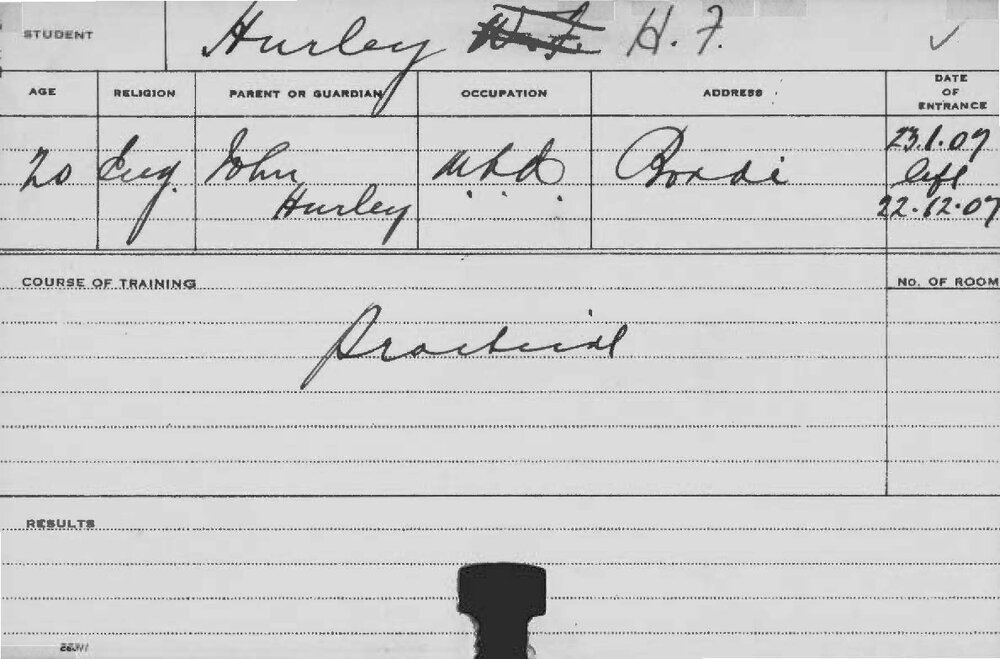 STUDENT Hurley H. F. ✓
AGE RELIGION PARENT OR GUARDIAN OCCUPATION ADDRESS DATE OF ENTRANCE
20 Eng. John Hurley Bondi 23.1.07
left
22.12.07
COURSE OF TRAINING No. OF ROOM
Practical
RESULTS